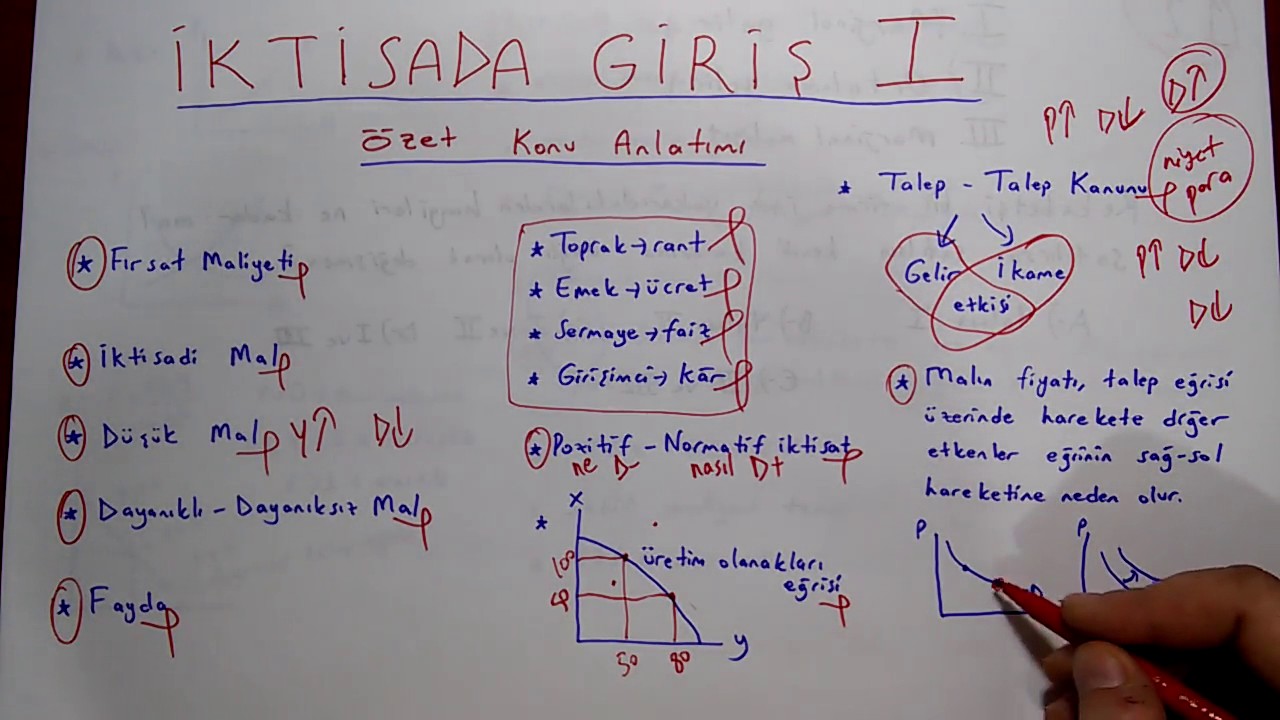 İKTİSADA GİRİŞ I
özet Konu Anlatımı
* Fırsat Maliyeti
* İktisadi Mal
* Düşük Mal Y↑ D↓
* Dayanıklı - Dayanıksız Mal
* Fayda
* Toprak → rant
* Emek → ücret
* Sermaye → faiz
* Girişimci → kâr
* Pozitif - Normatif iktisat
ne D- nasıl D+
*
X
10
40
50 80
y
üretim olanakları
eğrisi
P↑ D↓
D↑
niyet
para
* Talep - Talep Kanunu
Gelir İkame
etkisi
P↑ D↓
D↓
* Malın fiyatı, talep eğrisi
üzerinde harekete diğer
etkenler eğrinin sağ-sol
hareketine neden olur.
P
P